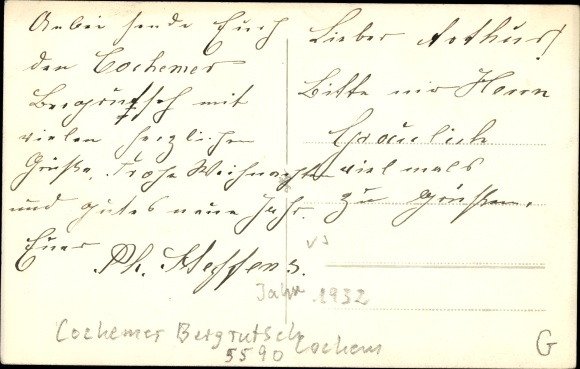 Anbei sende Euch
den Cochemer
Bergrutsch mit
vielen herzlichen
Grüße. Frohe Weihnachten
und gutes neue Jahr.
Euer
Ph. Steffens.
Lieber Arthur!
Bitte mir Herrn
Gräulich
viel mals
zu grüßen.
Jahr 1932
Cochemer Bergrutsch
5590 Cochem
G